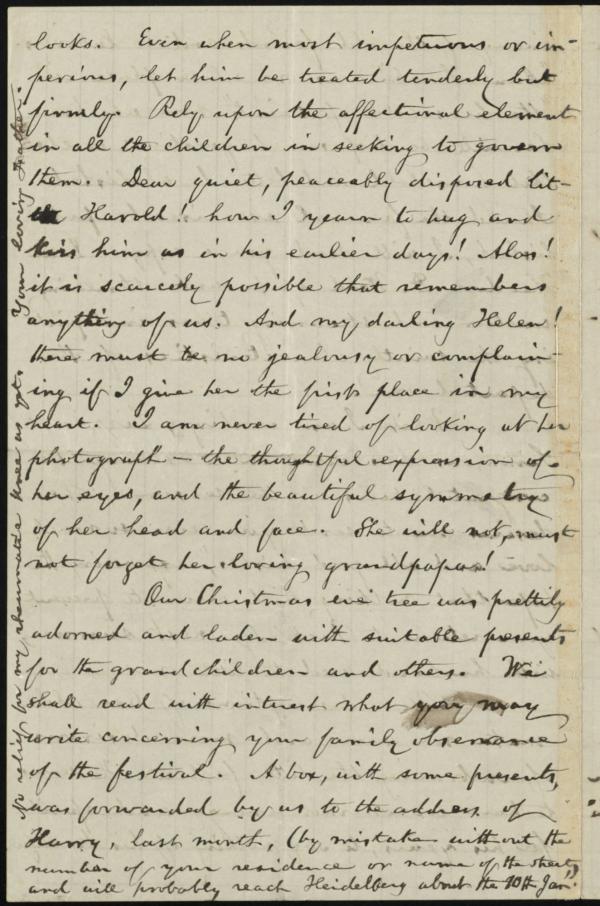 looks. Even when most impetuous or im-
perious, let him be treated tenderly but
firmly. Rely upon the affectional element
in all the children in seeking to govern
them. Dear quiet, peaceably disposed lit-
tle Harold! how I yearn to hug and
kiss him as in his earlier days! Alas!
it is scarcely possible that remembers
anything of us. And my darling Helen!
there must be no jealousy or complain-
ing if I give her the first place in my
heart. I am never tired of looking at her
photograph — the thoughtful expression of
her eyes, and the beautiful symmetry
of her head and face. She will not, must
not forget her loving grandpapa!
Our Christmas eve tree was prettily
adorned and laden with suitable presents
for the grandchildren and others. We
shall read with interest what you may
write concerning your family observance
of the festival. A box, with some presents,
was forwarded by us to the address of
Harry, last month, (by mistake without the
number of your residence or name of the street,)
and will probably reach Heidelberg about the 10th Jan.
No relief for my rheumatic knee as yet. Your loving Father.